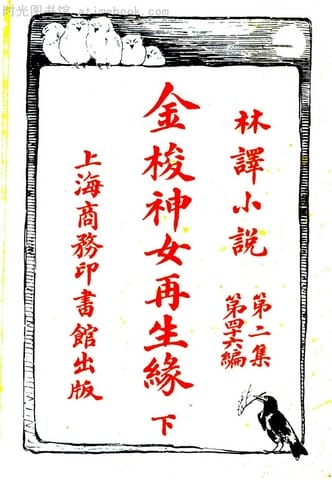 时光图书馆 - atimebook.com
林譯小說
第二集
第四十六編
金梭神女再生緣
下
上海商務印書館出版